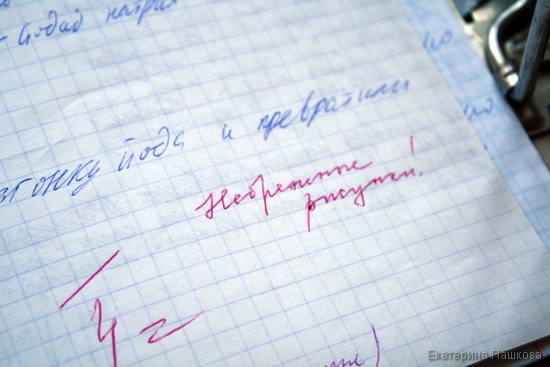 - Йодид натрия
возгонку йода и превратили
Небрежные
рисунки!
4-
Екатерина Пашкова